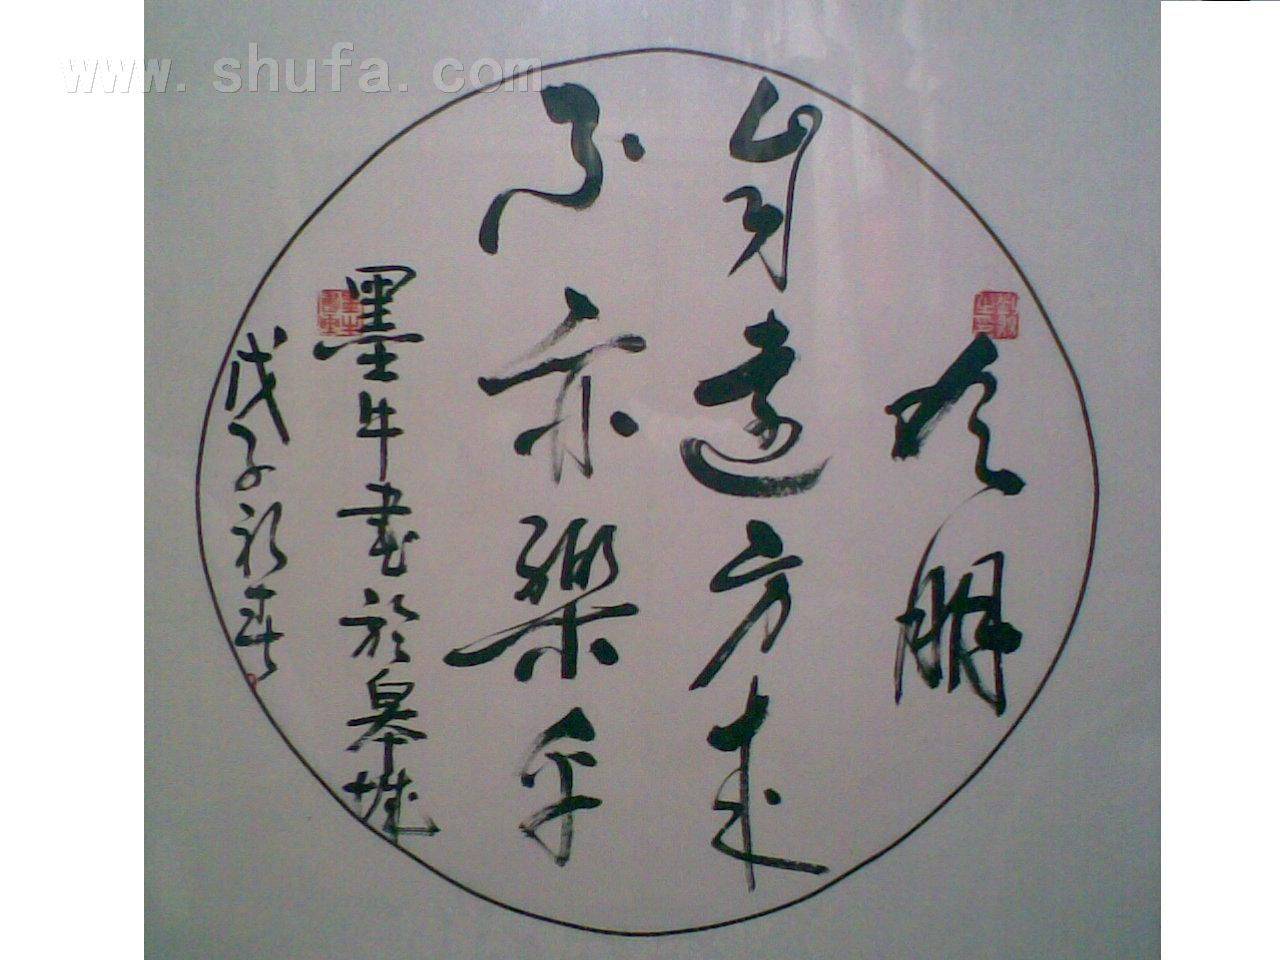 www.shufa.com
有朋
自遠方来
不亦樂乎
墨牛書於皋城
戊子初春